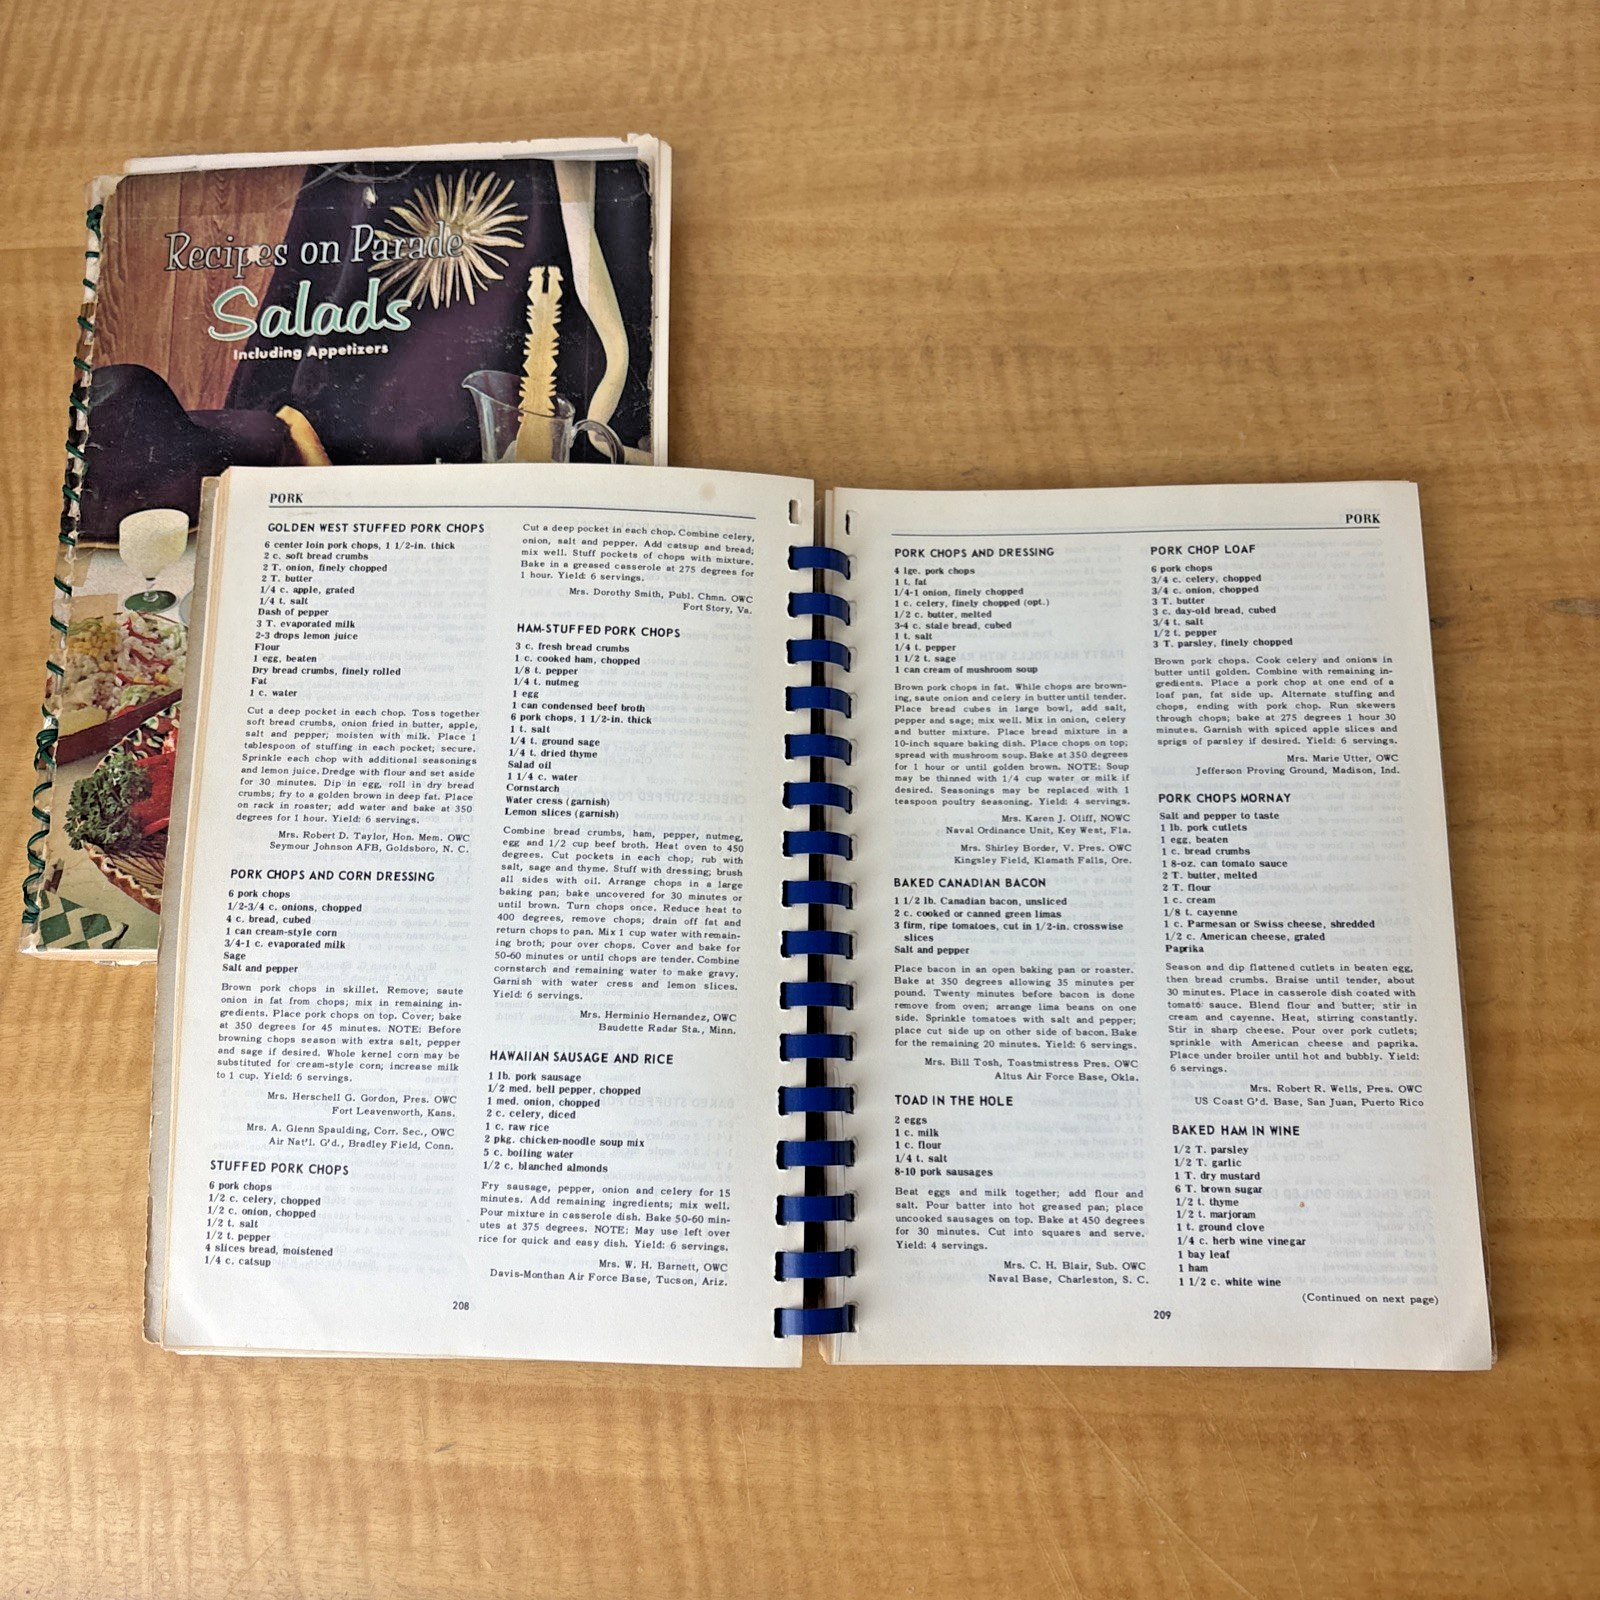 Recipes on Parade
Salads
Including Appetizers
PORK
GOLDEN WEST STUFFED PORK CHOPS
6 center loin pork chops, 1 1/2-in. thick
2 c. soft bread crumbs
2 T. onion, finely chopped
2 T. butter
1/4 c. apple, grated
1/4 t. salt
Dash of pepper
3 T. evaporated milk
2-3 drops lemon juice
Flour
1 egg, beaten
Dry bread crumbs, finely rolled
Fat
1 c. water
Cut a deep pocket in each chop. Toss together
soft bread crumbs, onion fried in butter, apple,
salt and pepper; moisten with milk. Place 1
tablespoon of stuffing in each pocket; secure.
Sprinkle each chop with additional seasonings
and lemon juice. Dredge with flour and set aside
for 30 minutes. Dip in egg, roll in dry bread
crumbs; fry to a golden brown in deep fat. Place
on rack in roaster; add water and bake at 350
degrees for 1 hour. Yield: 6 servings.
Mrs. Robert D. Taylor, Hon. Mem. OWC
Seymour Johnson AFB, Goldsboro, N. C.
PORK CHOPS AND CORN DRESSING
6 pork chops
1/2-3/4 c. onions, chopped
4 c. bread, cubed
1 can cream-style corn
3/4-1 c. evaporated milk
Sage
Salt and pepper
Brown pork chops in skillet. Remove; saute
onion in fat from chops; mix in remaining in-
gredients. Place pork chops on top. Cover; bake
at 350 degrees for 45 minutes. NOTE: Before
browning chops season with extra salt, pepper
and sage if desired. Whole kernel corn may be
substituted for cream-style corn; increase milk
to 1 cup. Yield: 6 servings.
Mrs. Herschell G. Gordon, Pres. OWC
Fort Leavenworth, Kans.
Mrs. A. Glenn Spaulding, Corr. Sec., OWC
Air Nat'l. G'd., Bradley Field, Conn.
STUFFED PORK CHOPS
6 pork chops
1/2 c. celery, chopped
1/2 c. onion, chopped
1/2 t. salt
1/2 t. pepper
4 slices bread, moistened
1/4 c. catsup
Cut a deep pocket in each chop. Combine celery,
onion, salt and pepper. Add catsup and bread;
mix well. Stuff pockets of chops with mixture.
Bake in a greased casserole at 275 degrees for
1 hour. Yield: 6 servings.
Mrs. Dorothy Smith, Publ. Chmn. OWC
Fort Story, Va.
HAM-STUFFED PORK CHOPS
3 c. fresh bread crumbs
1 c. cooked ham, chopped
1/8 t. pepper
1/4 t. nutmeg
1 egg
1 can condensed beef broth
6 pork chops, 1 1/2-in. thick
1 t. salt
1/4 t. ground sage
1/4 t. dried thyme
Salad oil
1 1/4 c. water
Cornstarch
Water cress (garnish)
Lemon slices (garnish)
Combine bread crumbs, ham, pepper, nutmeg,
egg and 1/2 cup beef broth. Heat oven to 450
degrees. Cut pockets in each chop; rub with
salt, sage and thyme. Stuff with dressing; brush
all sides with oil. Arrange chops in a large
baking pan; bake uncovered for 30 minutes or
until brown. Turn chops once. Reduce heat to
400 degrees, remove chops; drain off fat and
return chops to pan. Mix 1 cup water with remain-
ing broth; pour over chops. Cover and bake for
50-60 minutes or until chops are tender. Combine
cornstarch and remaining water to make gravy.
Garnish with water cress and lemon slices.
Yield: 6 servings.
Mrs. Herminio Hernandez, OWC
Baudette Radar Sta., Minn.
HAWAIIAN SAUSAGE AND RICE
1 lb. pork sausage
1/2 med. bell pepper, chopped
1 med. onion, chopped
2 c. celery, diced
1 c. raw rice
2 pkg. chicken-noodle soup mix
5 c. boiling water
1/2 c. blanched almonds
Fry sausage, pepper, onion and celery for 15
minutes. Add remaining ingredients; mix well.
Pour mixture in casserole dish. Bake 50-60 min-
utes at 375 degrees. NOTE: May use left over
rice for quick and easy dish. Yield: 6 servings.
Mrs. W. H. Barnett, OWC
Davis-Monthan Air Force Base, Tucson, Ariz.
208
PORK
PORK CHOPS AND DRESSING
4 lge. pork chops
1 t. fat
1/4-1 onion, finely chopped
1 c. celery, finely chopped (opt.)
1/2 c. butter, melted
3-4 c. stale bread, cubed
1 t. salt
1/4 t. pepper
1 1/2 t. sage
1 can cream of mushroom soup
Brown pork chops in fat. While chops are brown-
ing, saute onion and celery in butter until tender.
Place bread cubes in large bowl, add salt,
pepper and sage; mix well. Mix in onion, celery
and butter mixture. Place bread mixture in a
10-inch square baking dish. Place chops on top;
spread with mushroom soup. Bake at 350 degrees
for 1 hour or until golden brown. NOTE: Soup
may be thinned with 1/4 cup water or milk if
desired. Seasonings may be replaced with 1
teaspoon poultry seasoning. Yield: 4 servings.
Mrs. Karen J. Oliff, NOWC
Naval Ordinance Unit, Key West, Fla.
Mrs. Shirley Border, V. Pres. OWC
Kingsley Field, Klamath Falls, Ore.
BAKED CANADIAN BACON
1 1/2 lb. Canadian bacon, unsliced
2 c. cooked or canned green limas
3 firm, ripe tomatoes, cut in 1/2-in. crosswise
slices
Salt and pepper
Place bacon in an open baking pan or roaster.
Bake at 350 degrees allowing 35 minutes per
pound. Twenty minutes before bacon is done
remove from oven; arrange lima beans on one
side. Sprinkle tomatoes with salt and pepper;
place cut side up on other side of bacon. Bake
for the remaining 20 minutes. Yield: 6 servings.
Mrs. Bill Tosh, Toastmistress Pres. OWC
Altus Air Force Base, Okla.
TOAD IN THE HOLE
2 eggs
1 c. milk
1 c. flour
1/4 t. salt
8-10 pork sausages
Beat eggs and milk together; add flour and
salt. Pour batter into hot greased pan; place
uncooked sausages on top. Bake at 450 degrees
for 30 minutes. Cut into squares and serve.
Yield: 4 servings.
Mrs. C. H. Blair, Sub. OWC
Naval Base, Charleston, S. C.
PORK CHOP LOAF
6 pork chops
3/4 c. celery, chopped
3/4 c. onion, chopped
3 T. butter
3 c. day-old bread, cubed
3/4 t. salt
1/2 t. pepper
3 T. parsley, finely chopped
Brown pork chops. Cook celery and onions in
butter until golden. Combine with remaining in-
gredients. Place a pork chop at one end of a
loaf pan, fat side up. Alternate stuffing and
chops, ending with pork chop. Run skewers
through chops; bake at 275 degrees 1 hour 30
minutes. Garnish with spiced apple slices and
sprigs of parsley if desired. Yield: 6 servings.
Mrs. Marie Utter, OWC
Jefferson Proving Ground, Madison, Ind.
PORK CHOPS MORNAY
Salt and pepper to taste
1 lb. pork cutlets
1 egg, beaten
1 c. bread crumbs
1 8-oz. can tomato sauce
2 T. butter, melted
2 T. flour
1 c. cream
1/8 t. cayenne
1 c. Parmesan or Swiss cheese, shredded
1/2 c. American cheese, grated
Paprika
Season and dip flattened cutlets in beaten egg,
then bread crumbs. Braise until tender, about
30 minutes. Place in casserole dish coated with
tomato sauce. Blend flour and butter; stir in
cream and cayenne. Heat, stirring constantly.
Stir in sharp cheese. Pour over pork cutlets;
sprinkle with American cheese and paprika.
Place under broiler until hot and bubbly. Yield:
6 servings.
Mrs. Robert R. Wells, Pres. OWC
US Coast G'd. Base, San Juan, Puerto Rico
BAKED HAM IN WINE
1/2 T. parsley
1/2 T. garlic
1 T. dry mustard
6 T. brown sugar
1/2 t. thyme
1/2 t. marjoram
1 t. ground clove
1/4 c. herb wine vinegar
1 bay leaf
1 ham
1 1/2 c. white wine
(Continued on next page)
209